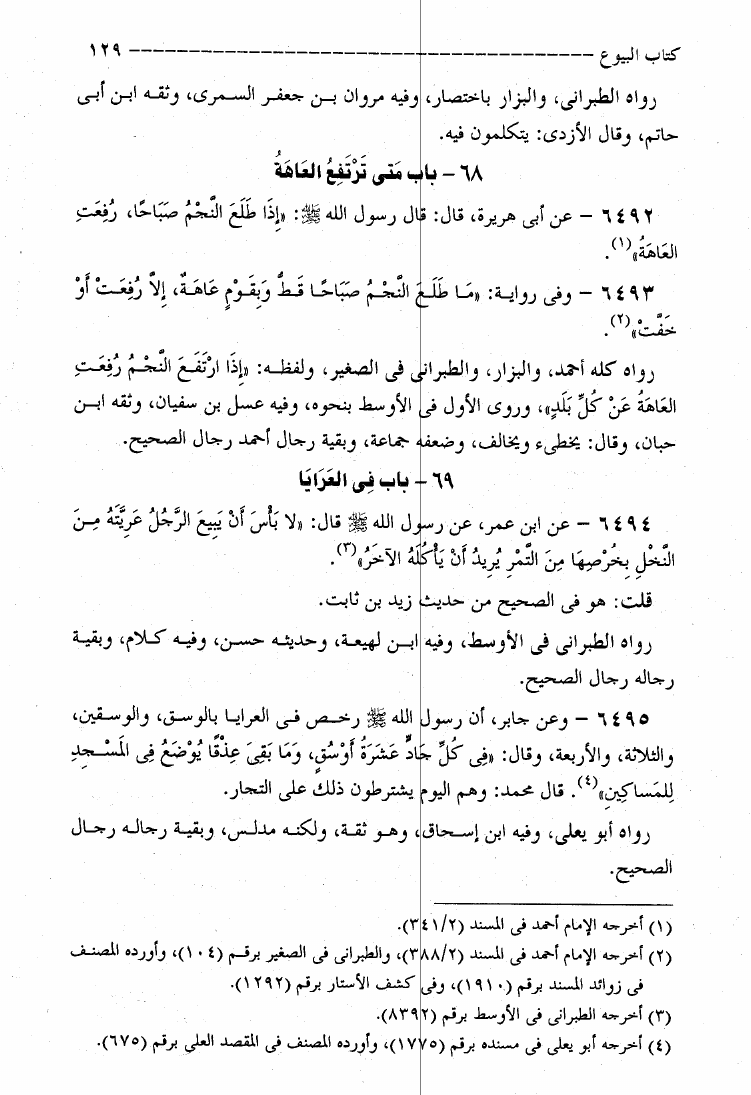 كتاب البيوع ـــــــــــــــــــــــــــــــــــــــــــــــــــــ ١٢٩
رواه الطبرانى، والبزار باختصار، وفيه مروان بن جعفر السمرى، وثقه ابن أبى
حاتم، وقال الأزدى: يتكلمون فيه.
٦٨ – باب مَتى تَرْتَفِعُ العَاهَةُ
٦٤٩٢ – عن أبى هريرة، قال: قال رسول الله ﷺ: «إِذَا طَلَعَ النَّجْمُ صَبَاحًا، رُفِعَتِ
العَاهَةُ»(١).
٦٤٩٣ – وفى رواية: «مَا طَلَعَ النَّجْمُ صَبَاحًا قَطُّ وَبِقَوْمٍ عَاهَةٌ، إِلاَّ رُفِعَتْ أَوْ
خَفَّتْ»(٢).
رواه كله أحمد، والبزار، والطبرانى فى الصغير، ولفظه: «إِذَا ارْتَفَعَ النَّجْمُ رُفِعَتِ
العَاهَةُ عَنْ كُلِّ بَلَدٍ»، وروى الأول فى الأوسط بنحوه، وفيه عسل بن سفيان، وثقه ابن
حبان، وقال: يخطىء ويخالف، وضعفه جماعة، وبقية رجال أحمد رجال الصحيح.
٦٩ – باب فِى العَرَايَا
٦٤٩٤ – عن ابن عمر، عن رسول الله ﷺ قال: «لا بَأْسَ أَنْ يَبِيعَ الرَّجُلُ عَرِيَّتَهُ مِنَ
النَّخْلِ بِخَرْصِهَا مِنَ التَّمْرِ يُرِيدُ أَنْ يَأْكُلَهُ الآخَرُ»(٣).
قلت: هو فى الصحيح من حديث زيد بن ثابت.
رواه الطبرانى فى الأوسط، وفيه ابن لهيعة، وحديثه حسن، وفيه كلام، وبقية
رجاله رجال الصحيح.
٦٤٩٥ – وعن جابر، أن رسول الله ﷺ رخص فى العرايا بالوسق، والوسقين،
والثلاثة، والأربعة، وقال: «فِى كُلِّ جَادٍّ عَشَرَةُ أَوْسُقٍ، وَمَا بَقِىَ عِذْقًا يُوْضَعُ فِى المَسْجِدِ
لِلمَسَاكِينِ»(٤). قال محمد: وهم اليوم يشترطون ذلك على التجار.
رواه أبو يعلى، وفيه ابن إسحاق، وهو ثقة، ولكنه مدلس، وبقية رجاله رجال
الصحيح.
(١) أخرجه الإمام أحمد فى المسند (٣٤١/٢).
(٢) أخرجه الإمام أحمد فى المسند (٣٨٨/٢)، والطبرانى فى الصغير برقم (١٠٤)، وأورده المصنف
فى زوائد المسند برقم (١٩١٠)، وفى كشف الأستار برقم (١٢٩٢).
(٣) أخرجه الطبرانى فى الأوسط برقم (٨٣٩٢).
(٤) أخرجه أبو يعلى فى مسنده برقم (١٧٧٥)، وأورده المصنف فى المقصد العلي برقم (٦٧٥).